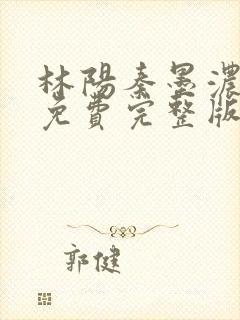 林陽秦墨濃
免費完整版
郭健